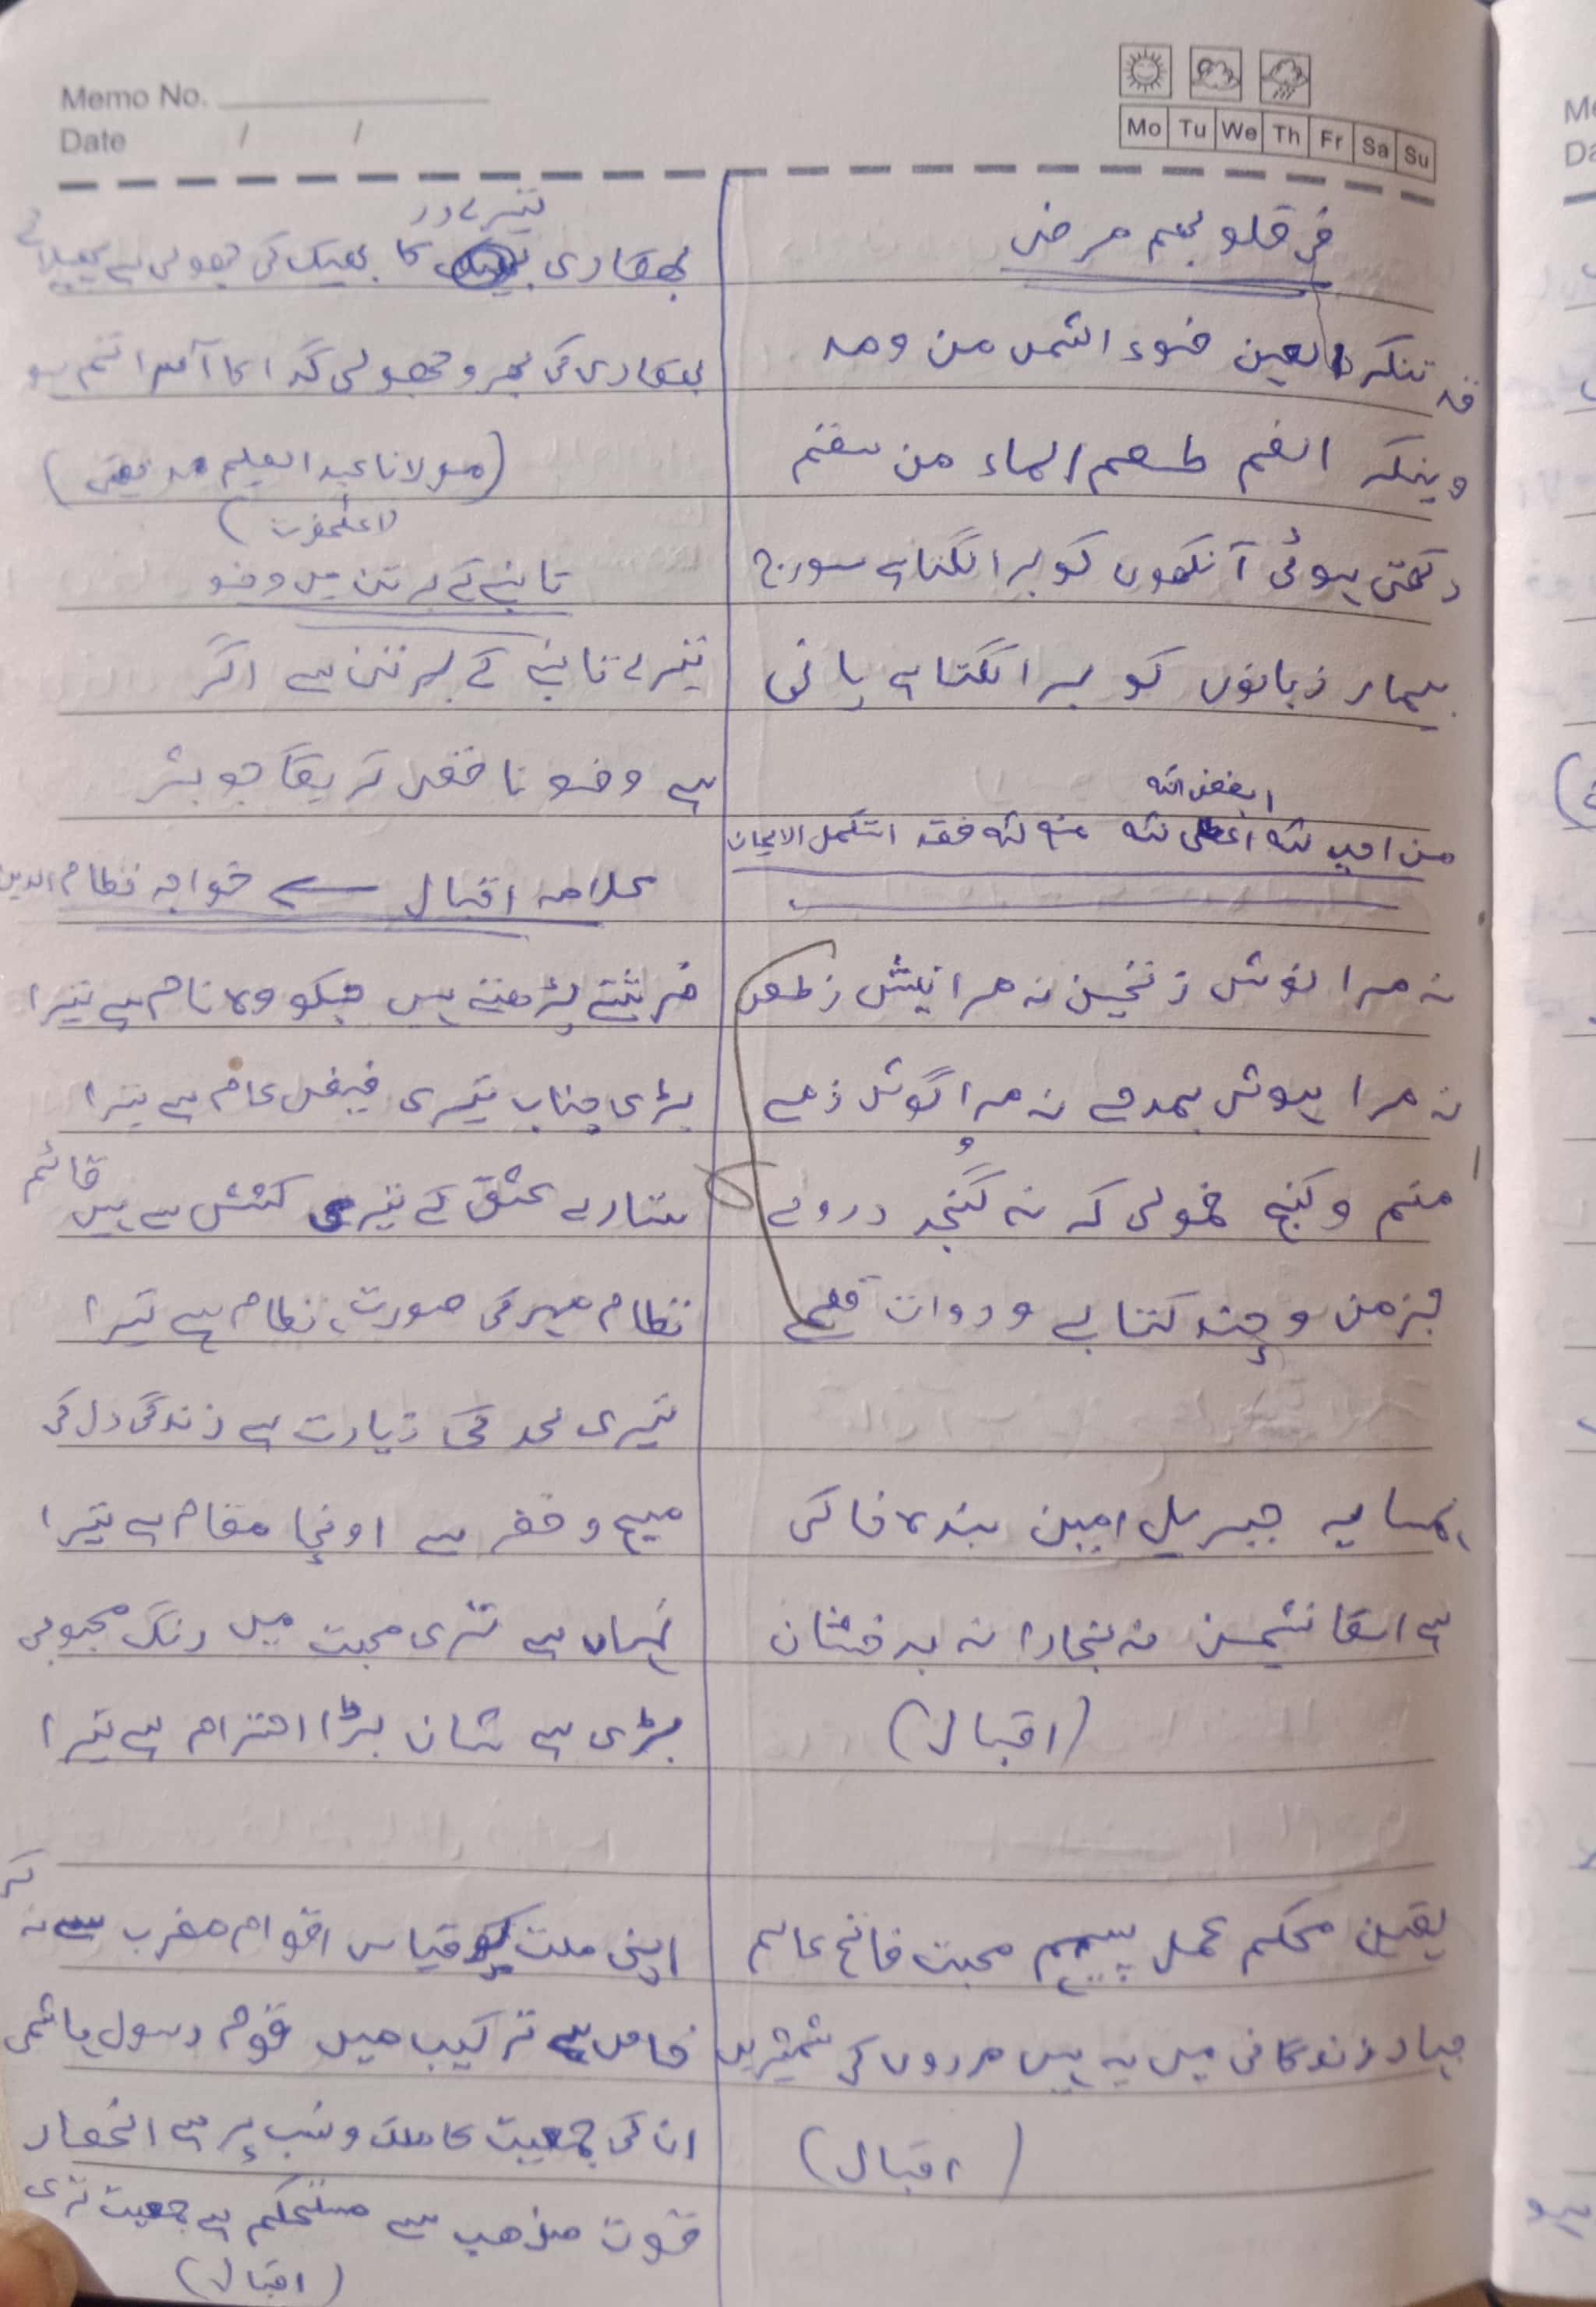 Memo No.
Date / /
Mo Tu We Th Fr Sa Su
فی قلوبہم مرض
قد تنکر العین ضوء الشمس من رمد
وینکر الفم طعم الماء من سقم
دکھتی ہوئی آنکھوں کو برا لگتا ہے سورج
بیمار زبانوں کو برا لگتا ہے پانی
ابغض للہ
من احب للہ اعطی للہ منع للہ فقد استکمل الایمان
نہ مرا نوش ز تحسین نہ مرا نیش ز طعن
نہ مرا ہوش بمدحے نہ مرا گوش ذمے
منم و کنج خمولی کہ نہ گنجد دروے
جز من و چند کتابے و دوات قلمے
ہمسایہ جبریل امین بندہ خاکی
ہے اسکا نشیمن نہ بخارا نہ بدخشان
(اقبال)
یقین محکم عمل پیہم محبت فاتح عالم
جہاد زندگانی میں یہ ہیں مردوں کی شمشیریں
(اقبال)
تیرے در
بھکاری کا بھیک کی جھولی ہے پھیلائے
بھکاری کی بھرو جھولی گدا کا آسرا تم ہو
(مولانا عبد العلیم صدیقی)
تانبے کے برتن میں وضو
تیرے تانبے کے برتن سے اگر
ہے وضو ناقص کریگا جو بشر
علامہ اقبال سے خواجہ نظام الدین
فرشتے پڑھتے ہیں جسکو وہ نام ہے تیرا
بڑی جناب تیری فیض عام ہے تیرا
ستارے عشق کے تیری کشش سے ہیں قائم
نظام مہر کی صورت نظام ہے تیرا
تیری لحد کی زیارت ہے زندگی دل کی
مسیح و خضر سے اونچا مقام ہے تیرا
نہاں ہے تری محبت میں رنگ محبوبی
بڑی ہے شان بڑا احترام ہے تیرا
اپنی ملت کو قیاس اقوام مغرب سے نہ کر
خاص ہے ترکیب میں قوم رسول ہاشمی
ان کی جمعیت کا ملک و نسب پر ہے انحصار
قوت مذہب سے مستحکم ہے جمعیت تری
(اقبال)